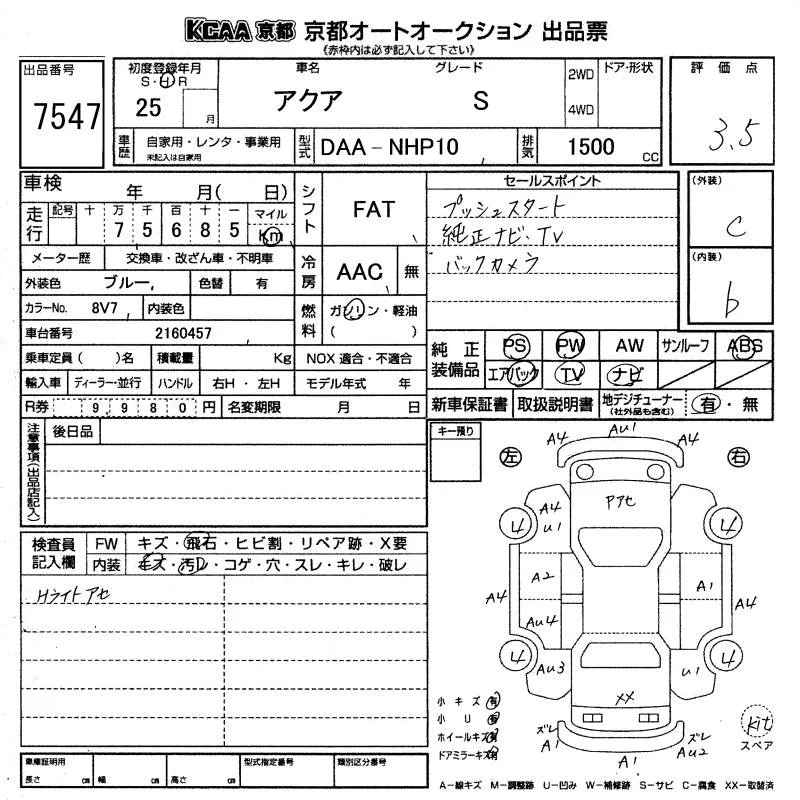 KCAA 京都 京都オートオークション 出品票
《赤枠内は必ず記入して下さい》
出品番号
7547
初度登録年月
S・H・R
25 月
車名
アクア
グレード
S
2WD
4WD
ドア・形状
評価点
3.5
車歴
自家用・レンタ・事業用
未記入は自家用
型式
DAA-NHP10
排気
1500 CC
車検 年 月( 日)
走行
記号 十 万 千 百 十 一
7 5 6 8 5
マイル
Km
メーター歴 交換車・改ざん車・不明車
外装色 ブルー 色替 有
カラーNo. 8V7 内装色
車台番号 2160457
乗車定員( )名 積載量 Kg NOX 適合・不適合
輸入車 ディーラー・並行 ハンドル 右H・左H モデル年式 年
R券 9,980円 名変期限 月 日
シフト
FAT
冷房
AAC 無
燃料
ガソリン・軽油
( )
セールスポイント
プッシュスタート
純正ナビ・TV
バックカメラ
(外装)
C
(内装)
b
純正装備品
PS PW AW サンルーフ ABS
エアバック TV ナビ
新車保証書 取扱説明書 地デジチューナー
(社外品も含む)
有・無
注意事項(出品店記入)
後日品
キー預り
検査員記入欄
FW キズ・飛石・ヒビ割・リペア跡・X要
内装 キズ・汚レ・コゲ・穴・スレ・キレ・破レ
Hライトアセ
左 右
A4 Au1 A4
Pアセ
4 A4 U1 4
A2 A1
A4 Au4 A4
4 Au3 U1 4
XX
ズレ A1 A1 ズレ Au2
kit
スペア
小キズ 有
小U 有
ホイールキズ 有
ドアミラーキズ 有
車庫証明用
長さ cm 幅 cm 高さ cm
型式指定番号
類別区分番号
A-線キズ M-調整跡 U-凹み W-補修跡 S-サビ C-腐食 XX-取替済